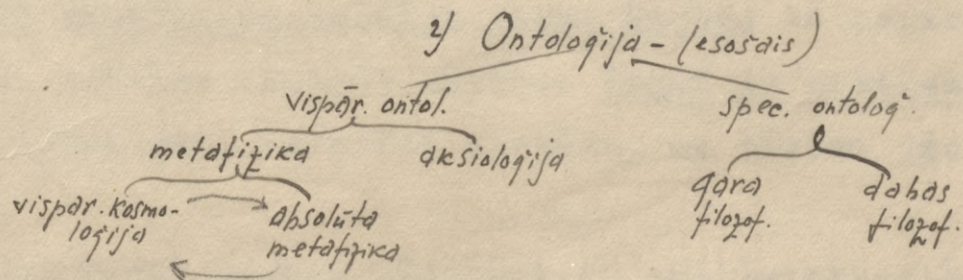 2) Ontoloģija - (esošais)
vispār. ontol.
spec. ontoloģ.
metafizika
aksioloģija
gara
filozof.
dabas
filozof.
vispār. kosmo-
loģija
absolūta
metafizika